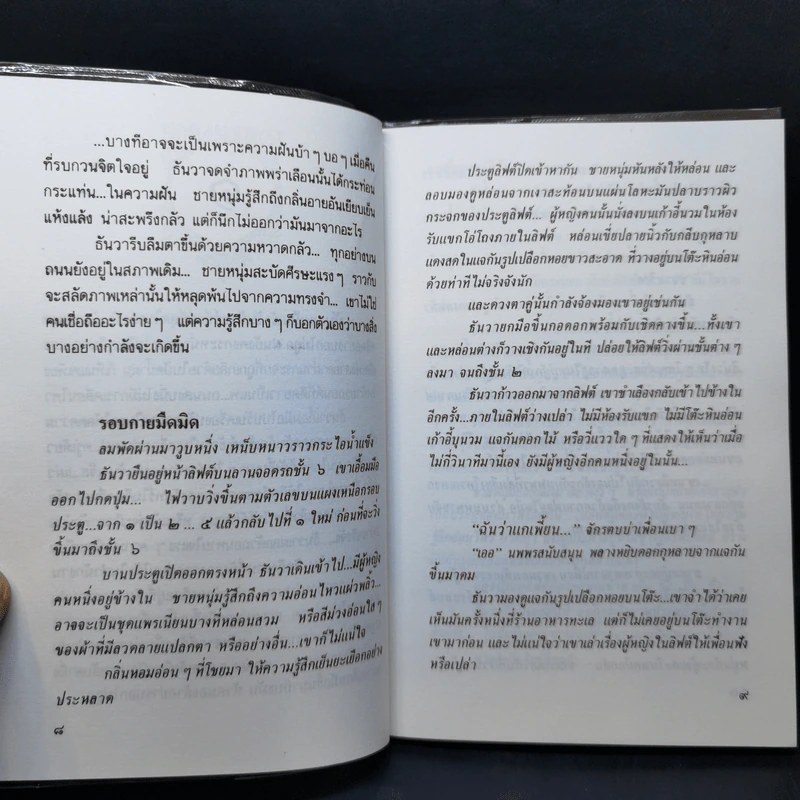 ...บางทีอาจจะเป็นเพราะความฝันบ้า ๆ บอ ๆ เมื่อคืน
ที่รบกวนจิตใจอยู่ ธันวาจดจำภาพพร่าเลือนนั้นได้กระท่อน
กระแท่น...ในความฝัน ชายหนุ่มรู้สึกถึงกลิ่นอายอันเยียบเย็น
แห้งแล้ง น่าสะพรึงกลัว แต่ก็นึกไม่ออกว่ามันมาจากอะไร
ธันวารีบลืมตาขึ้นด้วยความหวาดกลัว... ทุกอย่างบน
ถนนยังอยู่ในสภาพเดิม... ชายหนุ่มสะบัดศีรษะแรง ๆ ราวกับ
จะสลัดภาพเหล่านั้นให้หลุดพ้นไปจากความทรงจำ... เขาไม่ใช่
คนเชื่อถืออะไรง่าย ๆ แต่ความรู้สึกบาง ๆ ก็บอกตัวเองว่าบางสิ่ง
บางอย่างกำลังจะเกิดขึ้น
รอบกายมืดมิด
ลมพัดผ่านมาวูบหนึ่ง เหน็บหนาวราวกระไอน้ำแข็ง
ธันวายืนอยู่หน้าลิฟต์บนลานจอดรถชั้น ๖ เขาเอื้อมมือ
ออกไปกดปุ่ม... ไฟวาบวิ่งขึ้นตามตัวเลขบนแผงเหนือกรอบ
ประตู...จาก ๑ เป็น ๒ ... ๕ แล้วกลับไปที่ ๑ ใหม่ ก่อนที่จะวิ่ง
ขึ้นมาถึงชั้น ๖
บานประตูเปิดออกตรงหน้า ธันวาเดินเข้าไป...มีผู้หญิง
คนหนึ่งอยู่ข้างใน ชายหนุ่มรู้สึกถึงความอ่อนไหวแผ่วพลิ้ว...
อาจจะเป็นชุดแพรเนียนบางที่หล่อนสวม หรือสีม่วงอ่อนใส ๆ
ของผ้าที่มีลวดลายแปลกตา หรืออย่างอื่น...เขาก็ไม่แน่ใจ
กลิ่นหอมอ่อน ๆ ที่โชยมา ให้ความรู้สึกเย็นยะเยือกอย่าง
ประหลาด
๘
ประตูลิฟต์ปิดเข้าหากัน ชายหนุ่มหันหลังให้หล่อน และ
ลอบมองดูหล่อนจากเงาสะท้อนบนแผ่นโลหะมันปลาบราวผิว
กระจกของประตูลิฟต์... ผู้หญิงคนนั้นนั่งลงบนเก้าอี้นวมในห้อง
รับแขกโอ่โถงภายในลิฟต์ หล่อนเขี่ยปลายนิ้วกับกลีบกุหลาบ
แดงสดในแจกันรูปเปลือกหอยขาวสะอาด ที่วางอยู่บนโต๊ะหินอ่อน
ด้วยท่าทีไม่จริงจังนัก
และดวงตาคู่นั้นกำลังจ้องมองเขาอยู่เช่นกัน
ธันวายกมือขึ้นกอดอกพร้อมกับเชิดคางขึ้น...ทั้งเขา
และหล่อนต่างก็วางเชิงกันอยู่ในที ปล่อยให้ลิฟต์วิ่งผ่านชั้นต่าง ๆ
ลงมา จนถึงชั้น ๒
ธันวาก้าวออกมาจากลิฟต์ เขาชำเลืองกลับเข้าไปข้างใน
อีกครั้ง...ภายในลิฟต์ว่างเปล่า ไม่มีห้องรับแขก ไม่มีโต๊ะหินอ่อน
เก้าอี้บุนวม แจกันดอกไม้ หรือวี่แววใด ๆ ที่แสดงให้เห็นว่าเมื่อ
ไม่กี่วินาทีมานี้เอง ยังมีผู้หญิงอีกคนหนึ่งอยู่ในนั้น...
“ฉันว่าแกเพี้ยน...” จักรตบบ่าเพื่อนเบา ๆ
“เออ” นพพรสนับสนุน พลางหยิบดอกกุหลาบจากแจกัน
ขึ้นมาดม
ธันวามองดูแจกันรูปเปลือกหอยบนโต๊ะ...เขาจำได้ว่าเคย
เห็นมันครั้งหนึ่งที่ร้านอาหารทะเล แต่ก็ไม่เคยอยู่บนโต๊ะทำงาน
เขามาก่อน และไม่แน่ใจว่าเขาเล่าเรื่องผู้หญิงในลิฟต์ให้เพื่อนฟัง
หรือเปล่า
๙